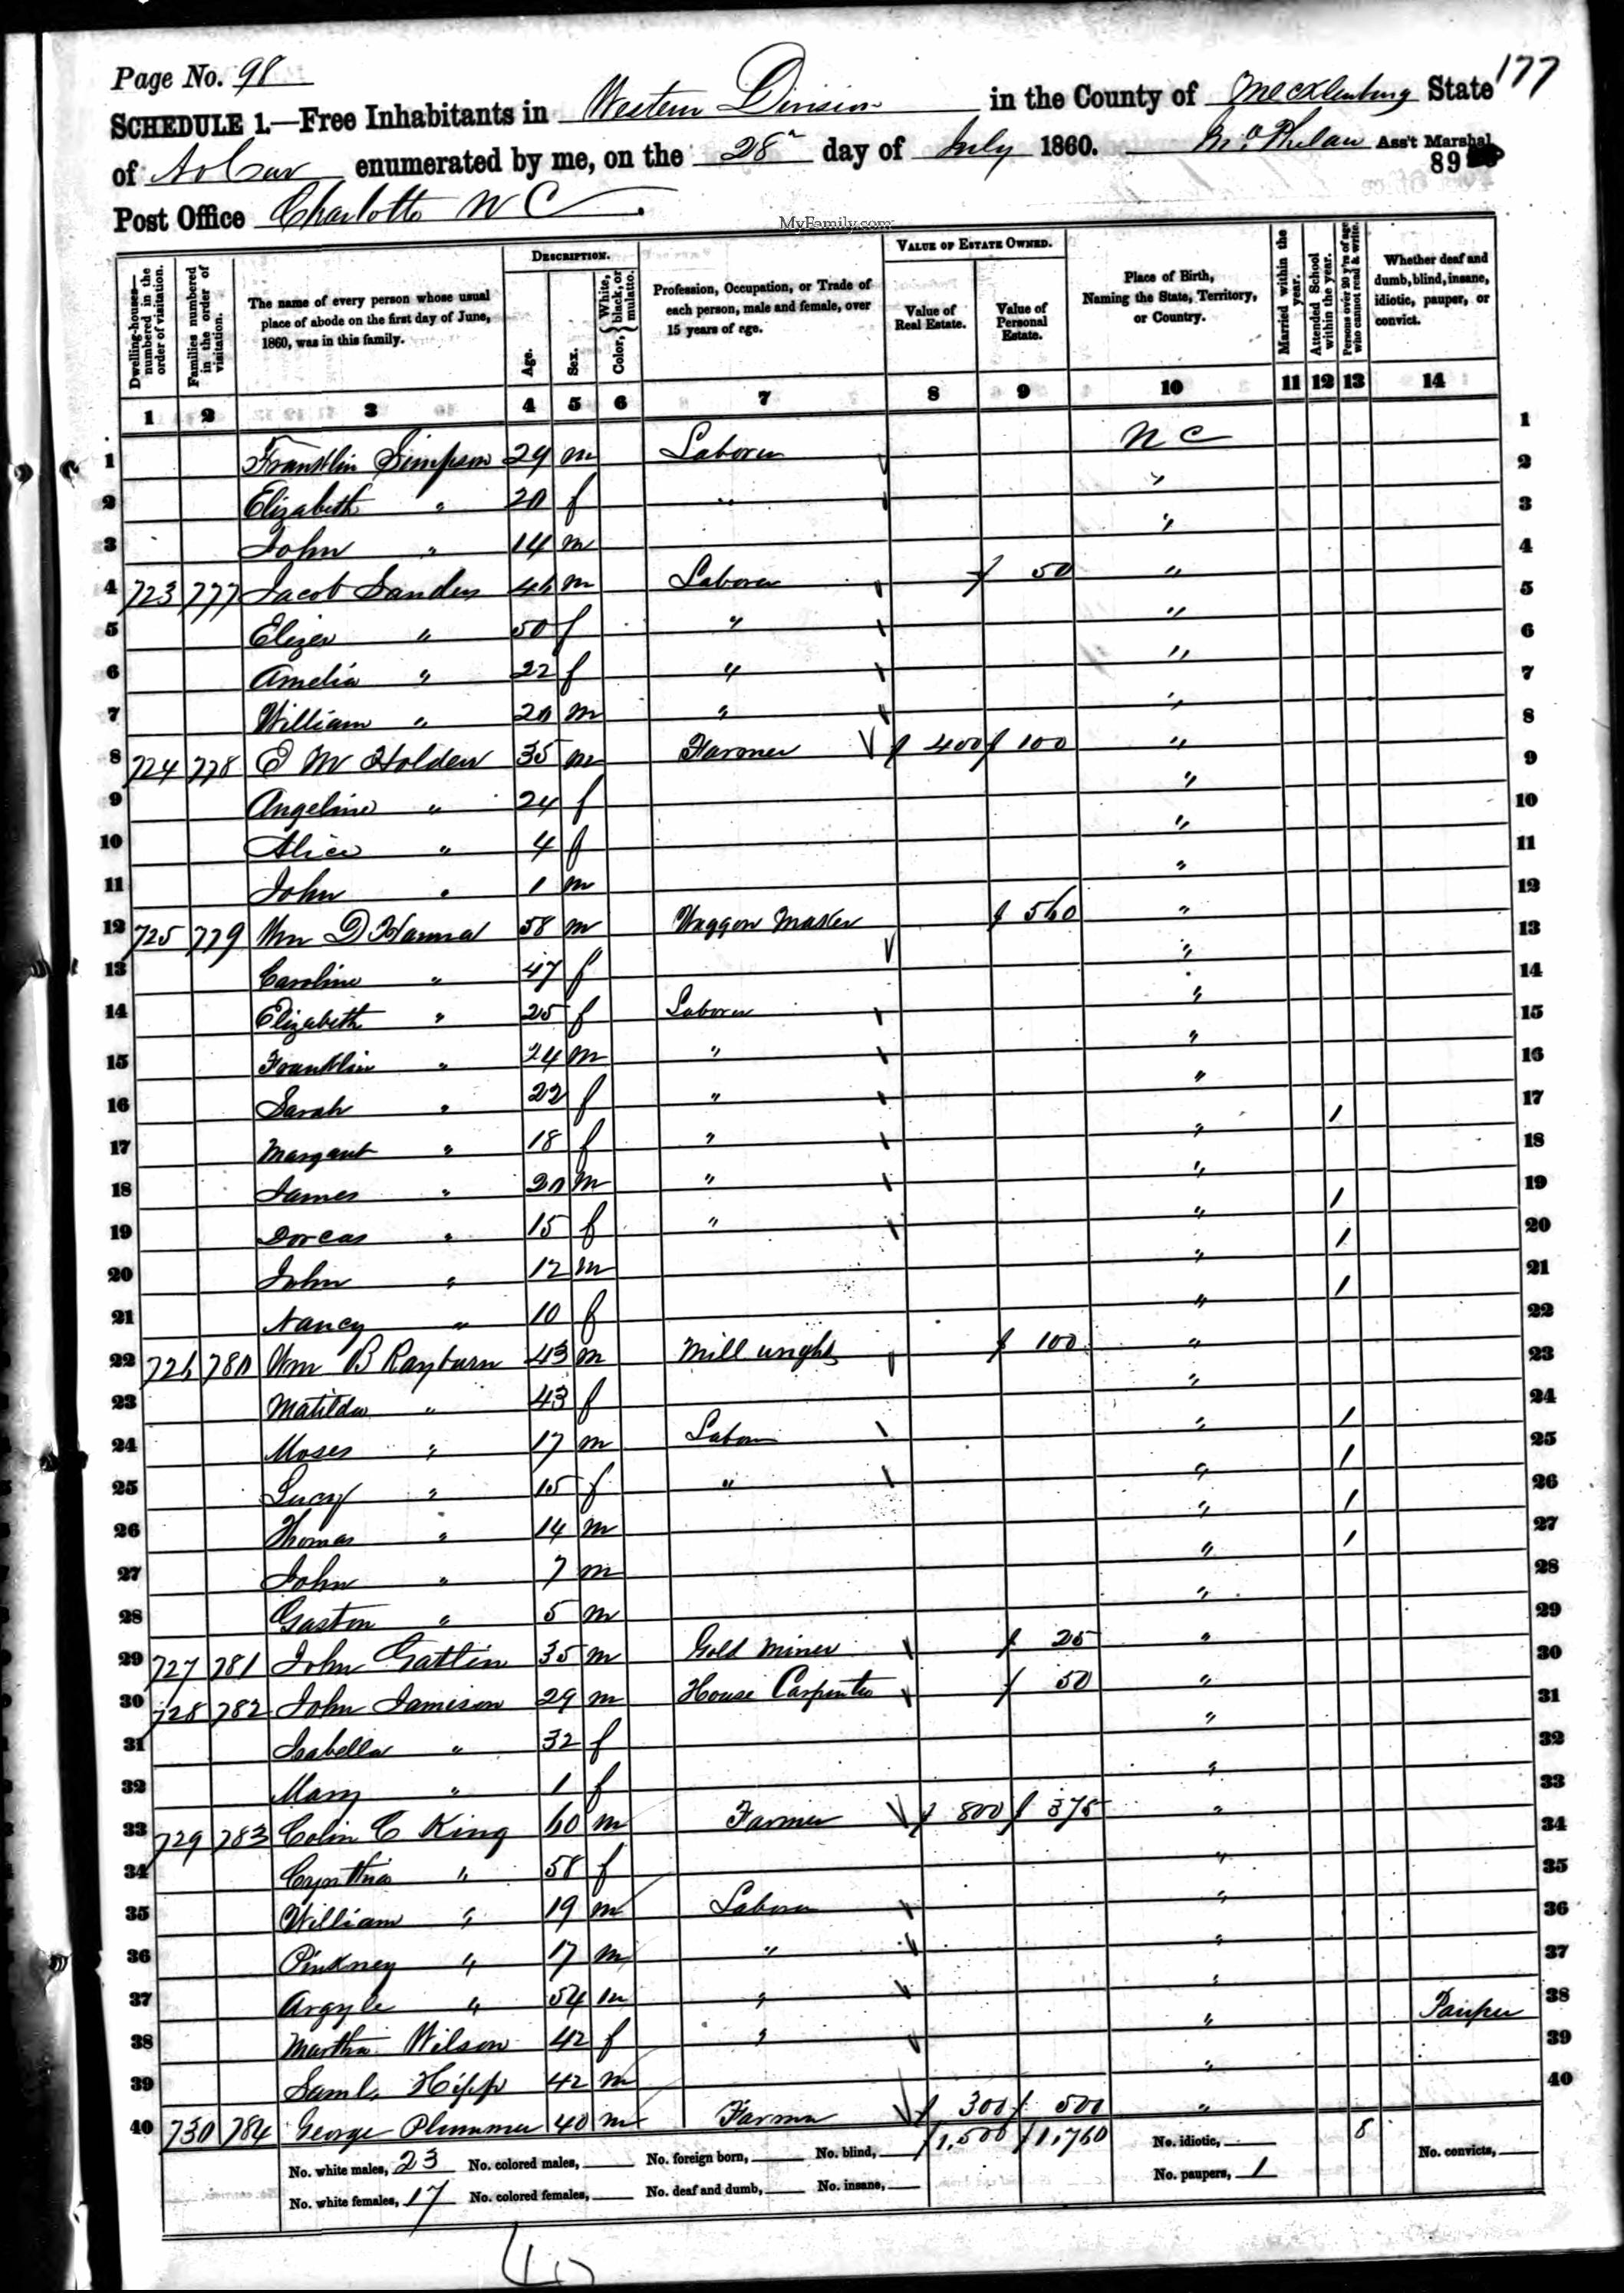 177
Page No. 98
SCHEDULE 1.—Free Inhabitants in Western Division in the County of Mecklenburg State
of No Car enumerated by me, on the 28" day of July 1860. Ass't Marshal
89
Post Office Charlotte N C
MyFamily.com
Dwelling-houses—numbered in the order of visitation.
Families numbered in the order of visitation.
The name of every person whose usual place of abode on the first day of June, 1860, was in this family.
DESCRIPTION.
Age.
Sex.
Color, { White, black, or mulatto.
Profession, Occupation, or Trade of each person, male and female, over 15 years of age.
VALUE OF ESTATE OWNED.
Value of Real Estate.
Value of Personal Estate.
Place of Birth, Naming the State, Territory, or Country.
Married within the year.
Attended School within the year.
Persons over 20 y'rs of age who cannot read & write.
Whether deaf and dumb, blind, insane, idiotic, pauper, or convict.
1 2 3 4 5 6 7 8 9 10 11 12 13 14
1 Franklin Simpson 29 m Laborer N C 1
2 Elizabeth " 20 f " " 2
3 John " 14 m " 3
4 723 777 Jacob Sanders 46 m Laborer 50 " 4
5 Elizer " 50 f " " 5
6 Amelia " 22 f " " 6
7 William " 20 m " " 7
8 724 778 E M Holden 35 m Farmer 400 100 " 8
9 Angeline " 24 f " 9
10 Alice " 4 f " 10
11 John " 1 m " 11
12 725 779 Wm D Hanna 58 m Waggon Maker 560 " 12
13 Caroline " 47 f " 13
14 Elizabeth " 25 f Laborer " 14
15 Franklin " 24 m " " 15
16 Sarah " 22 f " " 16
17 Margaret " 18 f " " 1 17
18 James " 20 m " " 18
19 Dorcas " 15 f " " 1 19
20 John " 12 m " 1 20
21 Nancy " 10 f " 1 21
22 726 780 Wm B Rayburn 43 m Mill wright 100 " 22
23 Matilda " 43 f " 23
24 Moses " 17 m Labor " 1 24
25 Lucy " 15 f " " 1 25
26 Thomas " 14 m " 1 26
27 John " 7 m " 1 27
28 Gaston " 5 m " 28
29 727 781 John Gatlin 35 m Gold Miner 25 " 29
30 728 782 John Jamison 29 m House Carpenter 50 " 30
31 Isabella " 32 f " 31
32 Mary " 1 f " 32
33 729 783 Colin C King 60 m Farmer 800 375 " 33
34 Cynthia " 58 f " 34
35 William " 19 m Laborer " 35
36 Pinkney " 17 m " " 36
37 Argyle " 54 m " " 37
38 Martha Wilson 42 f " " Pauper 38
39 Saml. Hipp 42 m " 39
40 730 784 George Plummer 40 m Farmer 300 500 " 40
No. white males, 23 No. colored males, No. foreign born, No. blind, 1,500 1,760 No. idiotic, 8 No. convicts,
No. white females, 17 No. colored females, No. deaf and dumb, No. insane, No. paupers, 1
40